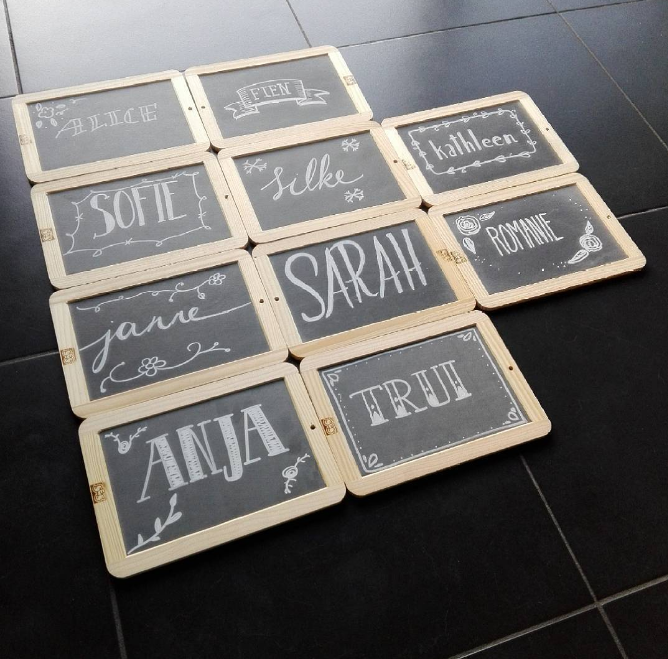 ALICE
FIEN
kathleen
SOFIE
Silke
ROMANIE
janne
SARAH
ANJA
TRUI